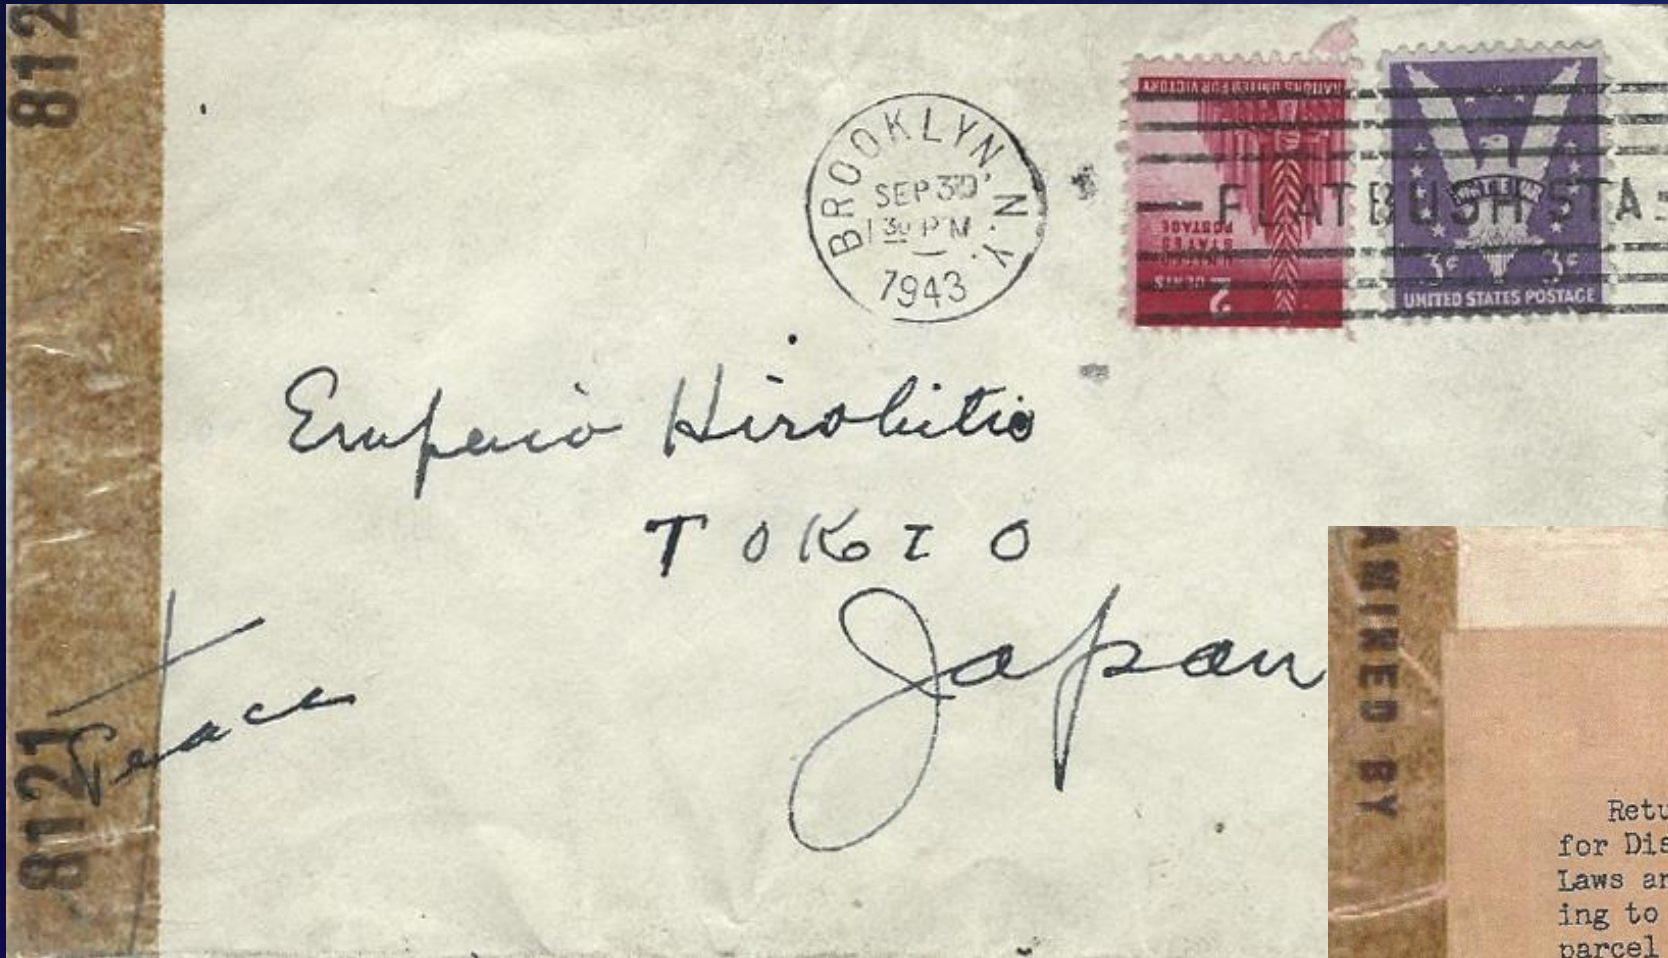 812
BROOKLYN, N.Y.
SEP 30
1 30 PM
1943
NATIONS UNITED FOR VICTORY
UNITED STATES POSTAGE
2 CENTS
FLATBUSH STA.
WIN THE WAR
3¢ 3¢
UNITED STATES POSTAGE
Hirohito
TOKIO
Japan
8121
AMINED BY
Retu
for Dis
Laws an
ing to
parcel